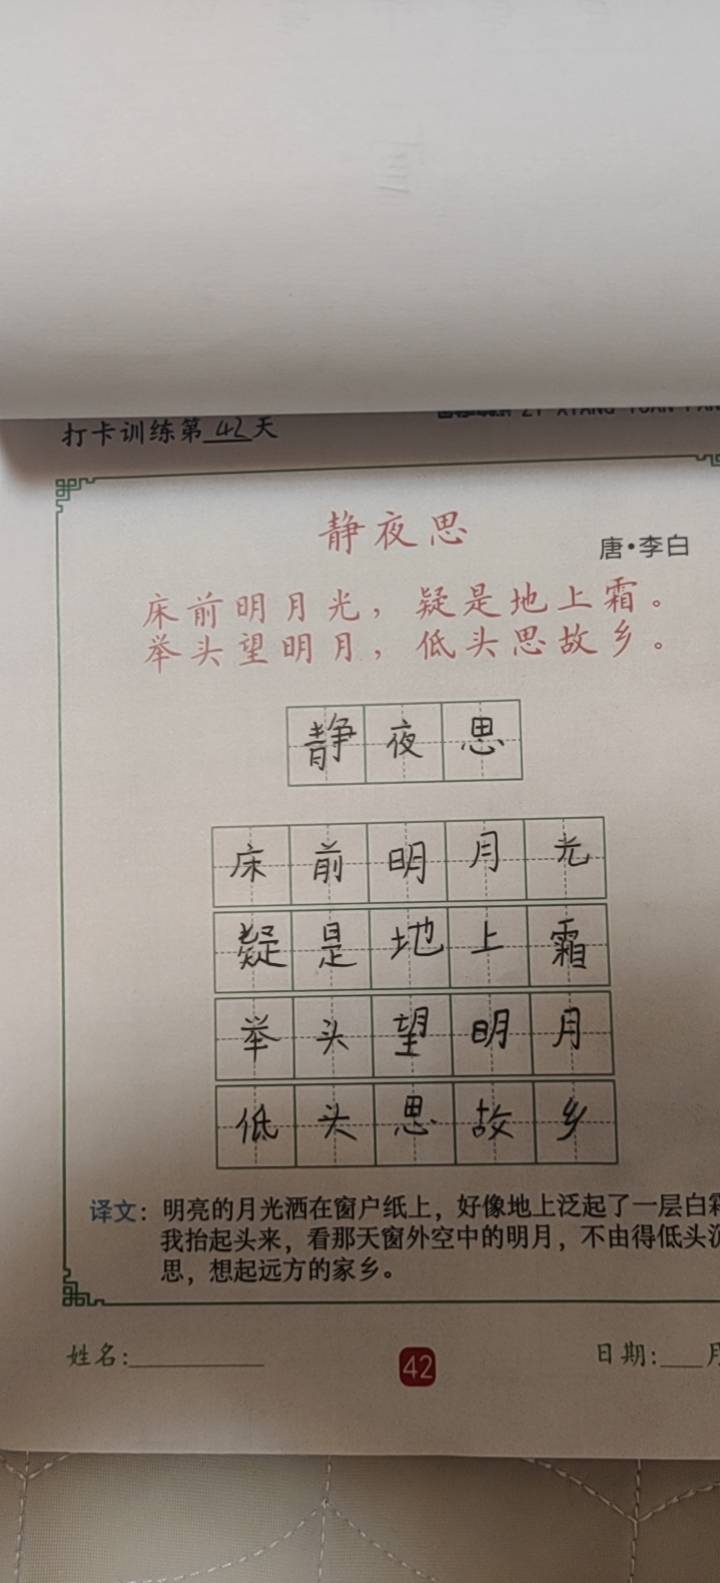 打卡训练第42天
静夜思
唐·李白
床前明月光，疑是地上霜。
举头望明月，低头思故乡。
静夜思
床前明月光
疑是地上霜
举头望明月
低头思故乡
译文：明亮的月光洒在窗户纸上，好像地上泛起了一层白
我抬起头来，看那天窗外空中的明月，不由得低头
思，想起远方的家乡。
姓名:
42
日期: